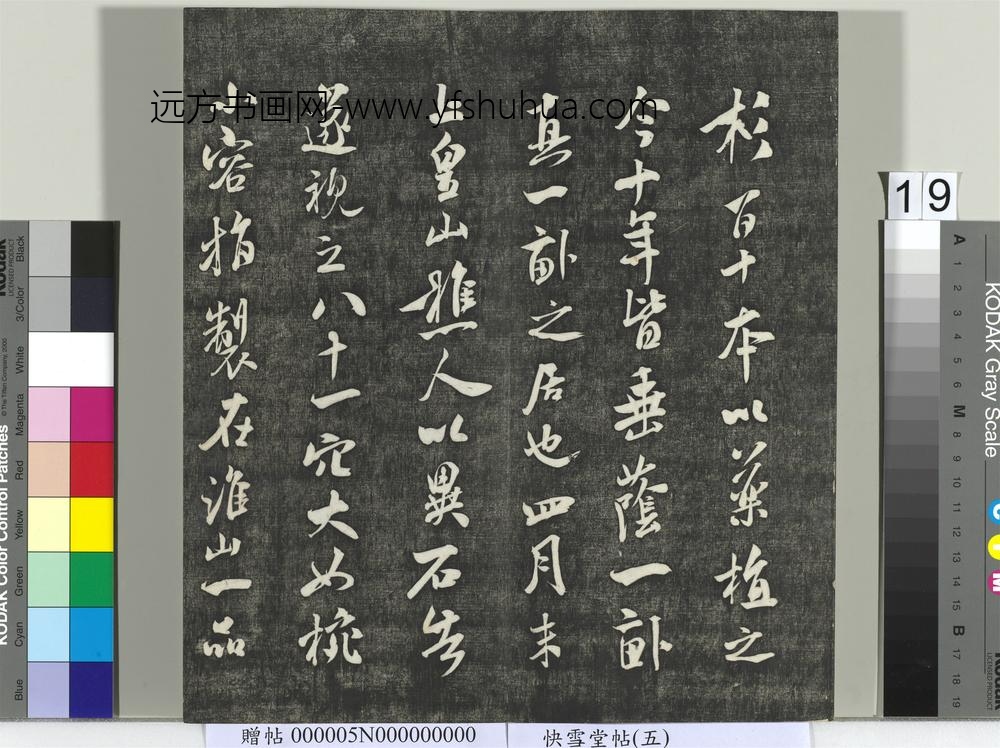 杉百十本以藥植之
今十年皆垂蔭一畝
真一畝之居也四月末
上皇山樵人以異石告
遂視之八十一穴大如椀
小容指製在淮山一品
远方书画网-www.yfshuhua.com
19
KODAK Color Control Patches
© The Tiffen Company, 2000
Kodak
LICENSED PRODUCT
Black
3/Color
White
Magenta
Red
Yellow
Green
Cyan
Blue
KODAK Gray Scale
A 1 2 3 4 5 6 M 8 9 10 11 12 13 14 15 B 17 18 19
C Y M
Kodak
LICENSED PRODUCT
贈帖 000005N000000000
快雪堂帖(五)